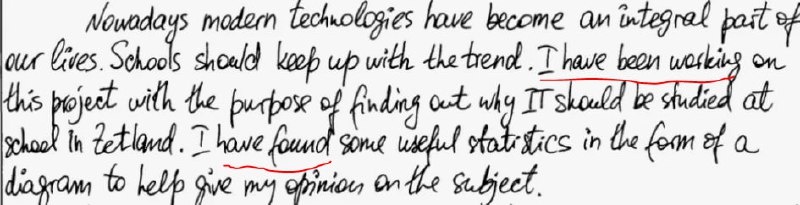 Nowadays modern technologies have become an integral part of
our lives. Schools should keep up with the trend. I have been working on
this project with the purpose of finding out why IT should be studied at
school in Zetland. I have found some useful statistics in the form of a
diagram to help give my opinion on the subject.